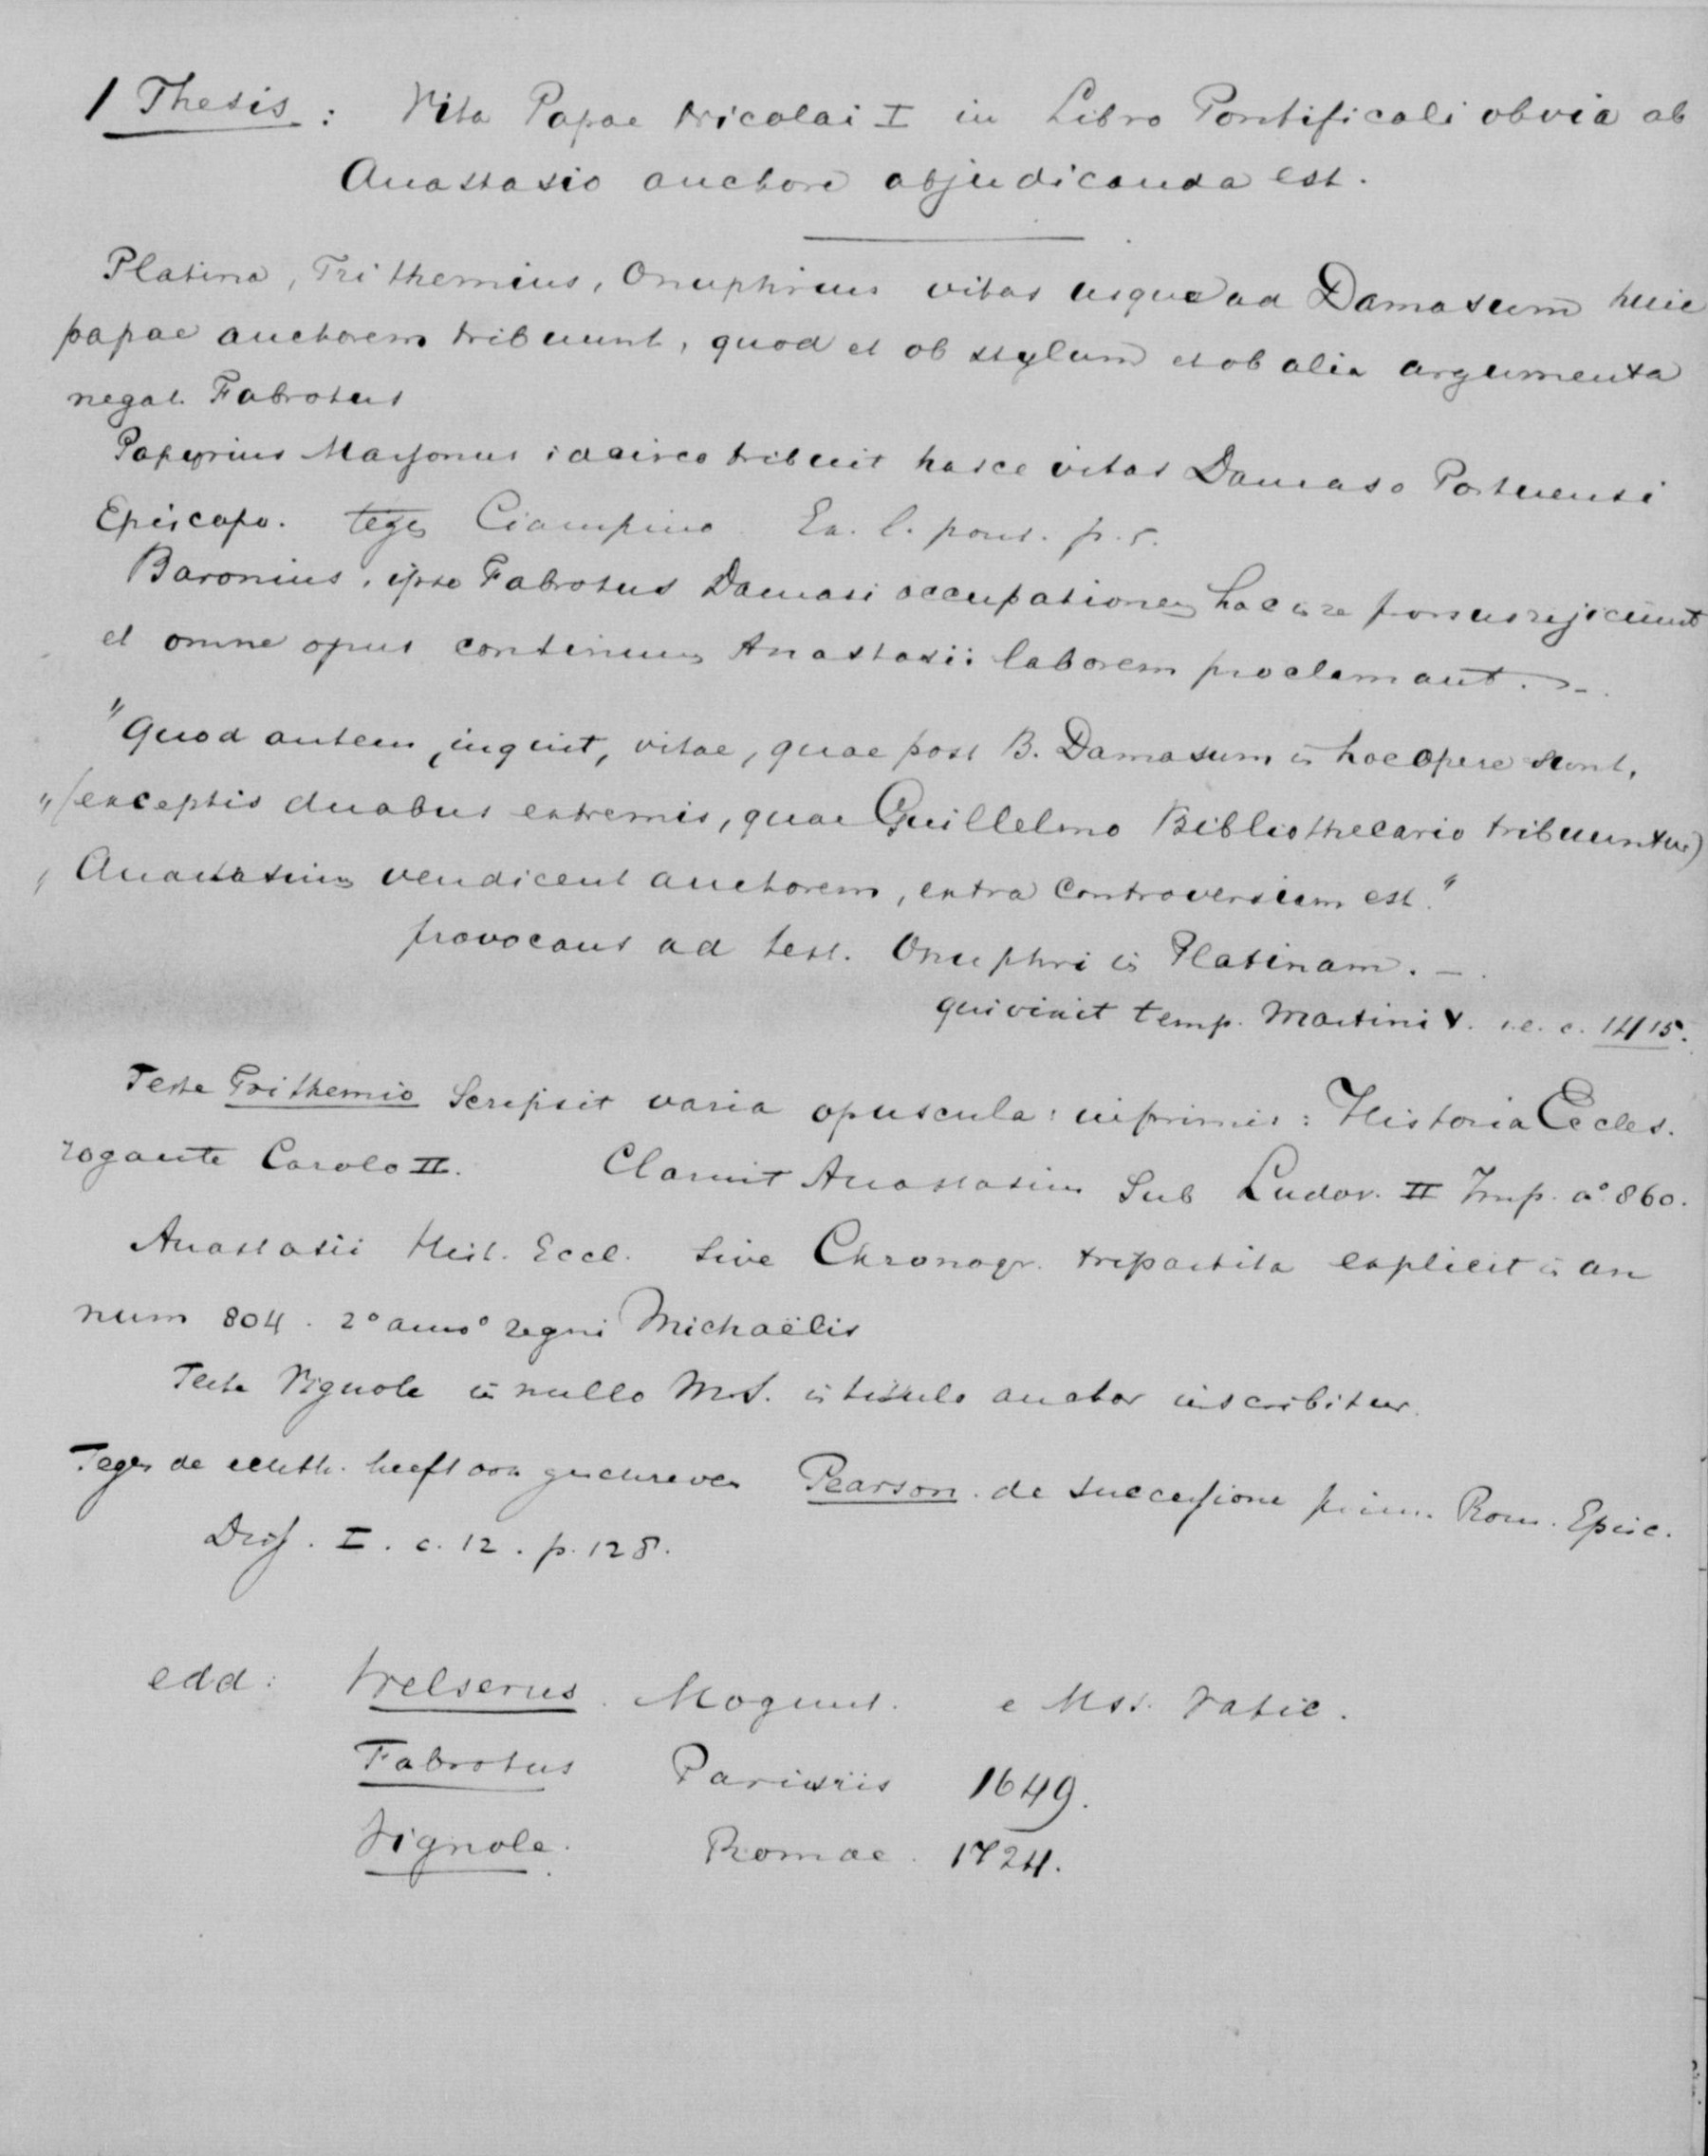 1 Thesis : Vita Papae Nicolai I in Libro Pontificali obvia ab
Anastasio auctore abjudicanda est.
Platina, Trithemius, Onuphrius vitas usque ad Damasum huic
papae auctorem tribuunt, quod et ob stylum et ob alia argumenta
negat Fabrotus
Papyrius Massonus idcirco tribuit hasce vitas Damaso Portuensi
Episcopo. tegen Ciampino Ex. l. pont. p. 5.
Baronius, ipse Fabrotus Damasi occupationem hac in re prorsus rejiciunt
et omne opus continuum Anastasii laborem proclamant. –.
"Quod autem, inquit, vitae, quae post B. Damasum in hoc opere sunt,
"(exceptis duabus extremis, quae Guillelmo Bibliothecario tribuuntur)
, Anastasium vendicent auctorem, extra controversiam est."
provocans ad test. Onuphri in Platinam. –.
qui vixit temp. Martini V. i.e. c. 1415.
Teste Trithemio Scripsit varia opuscula: inprimis: Historia Eccles.
rogante Carolo II. Claruit Anastasius Sub Ludov. II Imp. a° 860.
Anastasii Hist. Eccl. Sive Chronogr. tripartita explicit in an
num 804. 2° anno regni Michaëlis
Teste Vignole in nullo M.S. in titulo auctor inscribitur.
Tegen de echth. heeft ook geschreven Pearson. de successione prim. Rom. Episc.
Diss. I. c. 12. p. 128.
edd: Velserus. Mogunt. e Mss. Vatic.
Fabrotus Parisiis 1649.
Vignole. Romae. 1724.